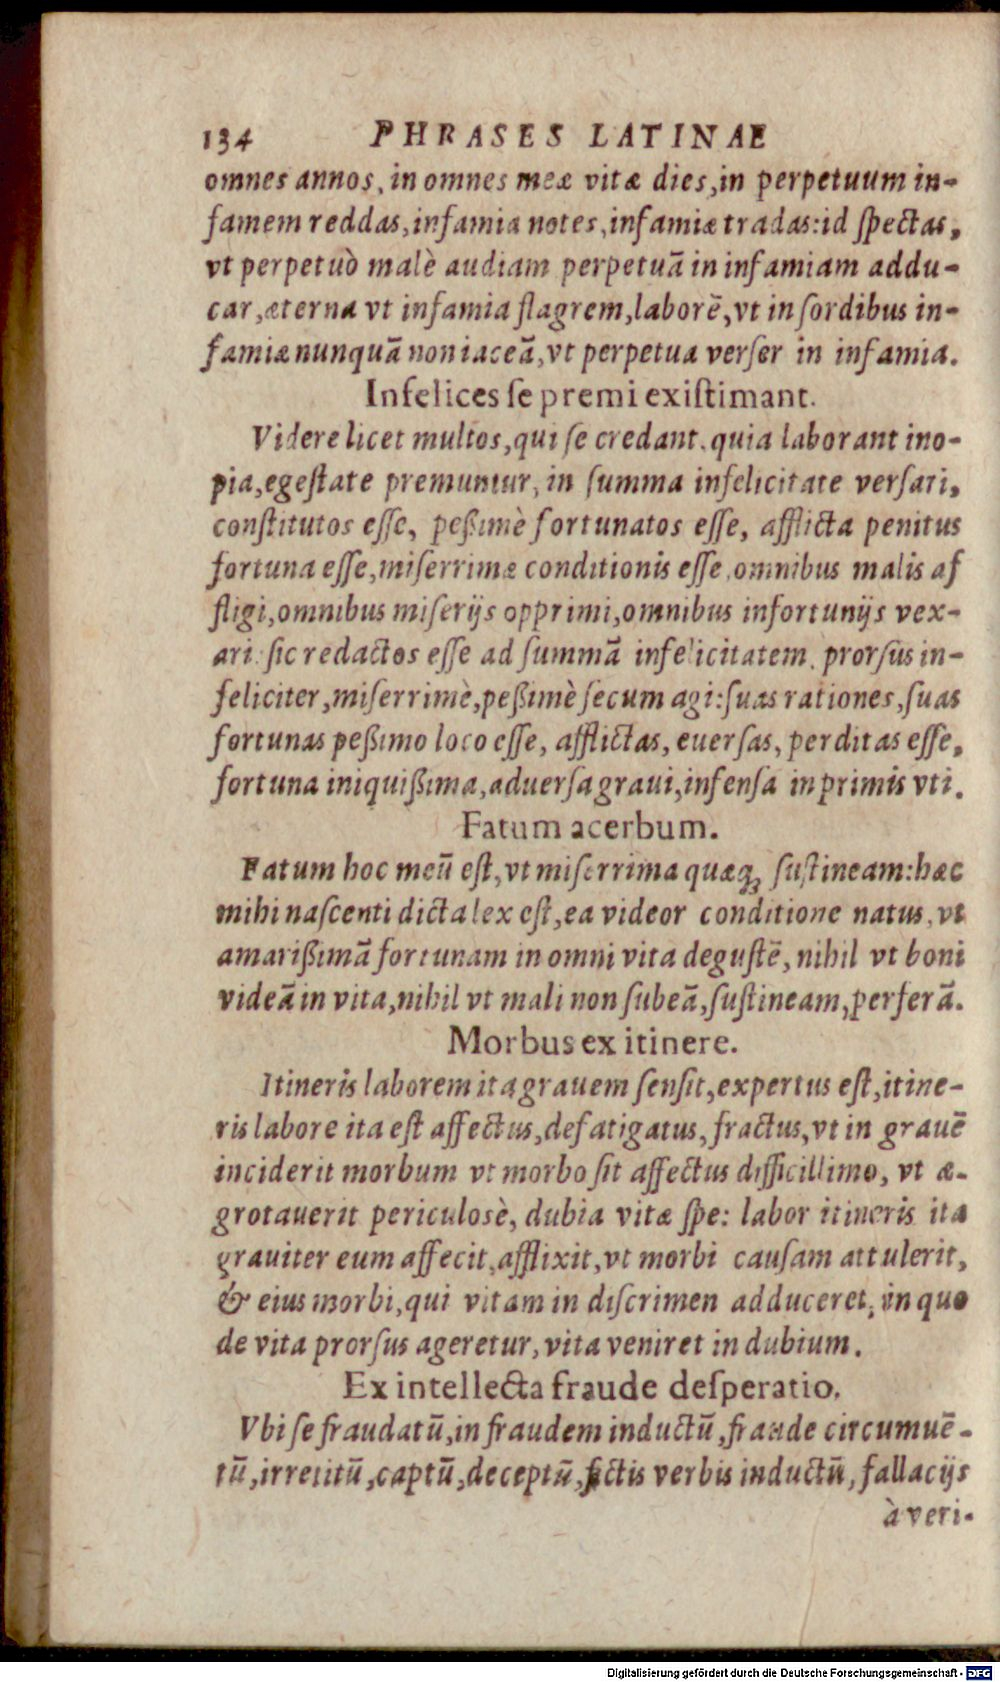 134 PHRASES LATINAE
omnes annos, in omnes meæ vitæ dies, in perpetuum in-
famem reddas, infamia notes, infamiæ tradas: id spectas,
vt perpetuò malè audiam perpetuā in infamiam addu-
car, æterna vt infamia flagrem, laborē, vt in sordibus in-
famiæ nunquā non iaceā, vt perpetua verser in infamia.
Infelices se premi existimant.
Videre licet multos, qui se credant, quia laborant ino-
pia, egestate premuntur, in summa infelicitate versari,
constitutos esse, peßimè fortunatos esse, afflicta penitus
fortuna esse, miserrimæ conditionis esse, omnibus malis af
fligi, omnibus miserijs opprimi, omnibus infortunijs vex-
ari: sic redactos esse ad summā infelicitatem, prorsus in-
feliciter, miserrimè, peßimè secum agi: suas rationes, suas
fortunas peßimo loco esse, afflictas, euersas, perditas esse,
fortuna iniquißima, aduersa graui, infensa inprimis vti.
Fatum acerbum.
Fatum hoc meū est, vt miserrima quæq; sustineam: hæc
mihi nascenti dicta lex est, ea videor conditione natus, vt
amarißimā fortunam in omni vita degustē, nihil vt boni
videā in vita, nihil vt mali non subeā, sustineam, perferā.
Morbus ex itinere.
Itineris laborem ita grauem sensit, expertus est, itine-
ris labore ita est affectus, defatigatus, fractus, vt in grauē
inciderit morbum vt morbo sit affectus difficillimo, vt æ-
grotauerit periculosè, dubia vitæ spe: labor itineris ita
grauiter eum affecit, afflixit, vt morbi causam attulerit,
& eius morbi, qui vitam in discrimen adduceret, in quo
de vita prorsus ageretur, vita veniret in dubium.
Ex intellecta fraude desperatio.
Vbi se fraudatū, in fraudem inductū, fraude circumuē-
tū, irretitū, captū, deceptū, fictis verbis inductū, fallacijs
à veri-
Digitalisierung gefördert durch die Deutsche Forschungsgemeinschaft - DFG